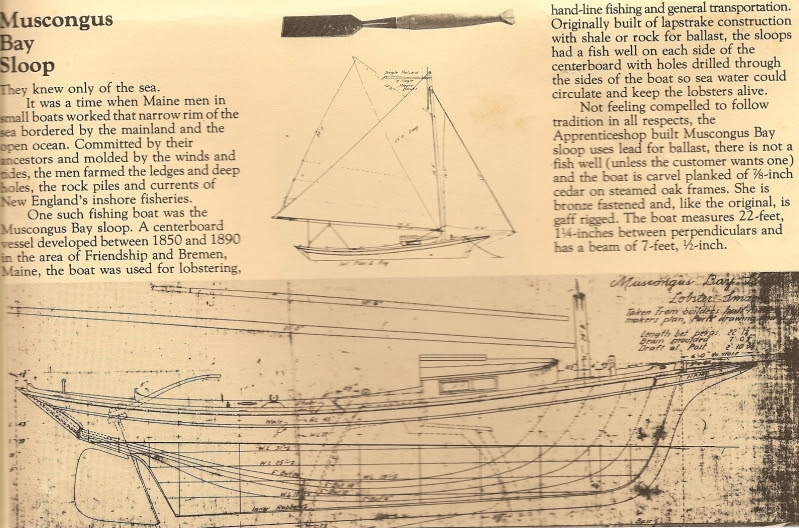 Muscongus
Bay
Sloop
They knew only of the sea.
It was a time when Maine men in
small boats worked that narrow rim of the
sea bordered by the mainland and the
open ocean. Committed by their
ancestors and molded by the winds and
tides, the men farmed the ledges and deep
holes, the rock piles and currents of
New England's inshore fisheries.
One such fishing boat was the
Muscongus Bay sloop. A centerboard
vessel developed between 1850 and 1890
in the area of Friendship and Bremen,
Maine, the boat was used for lobstering,
hand-line fishing and general transportation.
Originally built of lapstrake construction
with shale or rock for ballast, the sloops
had a fish well on each side of the
centerboard with holes drilled through
the sides of the boat so sea water could
circulate and keep the lobsters alive.
Not feeling compelled to follow
tradition in all respects, the
Apprenticeshop built Muscongus Bay
sloop uses lead for ballast, there is not a
fish well (unless the customer wants one)
and the boat is carvel planked of ⅞-inch
cedar on steamed oak frames. She is
bronze fastened and, like the original, is
gaff rigged. The boat measures 22-feet,
1¼-inches between perpendiculars and
has a beam of 7-feet, ½-inch.
Muscongus Bay
Lobster
Taken from builders
makers plan,
Length bet perps. 22
Beam moulded 7
Draft at Post 2